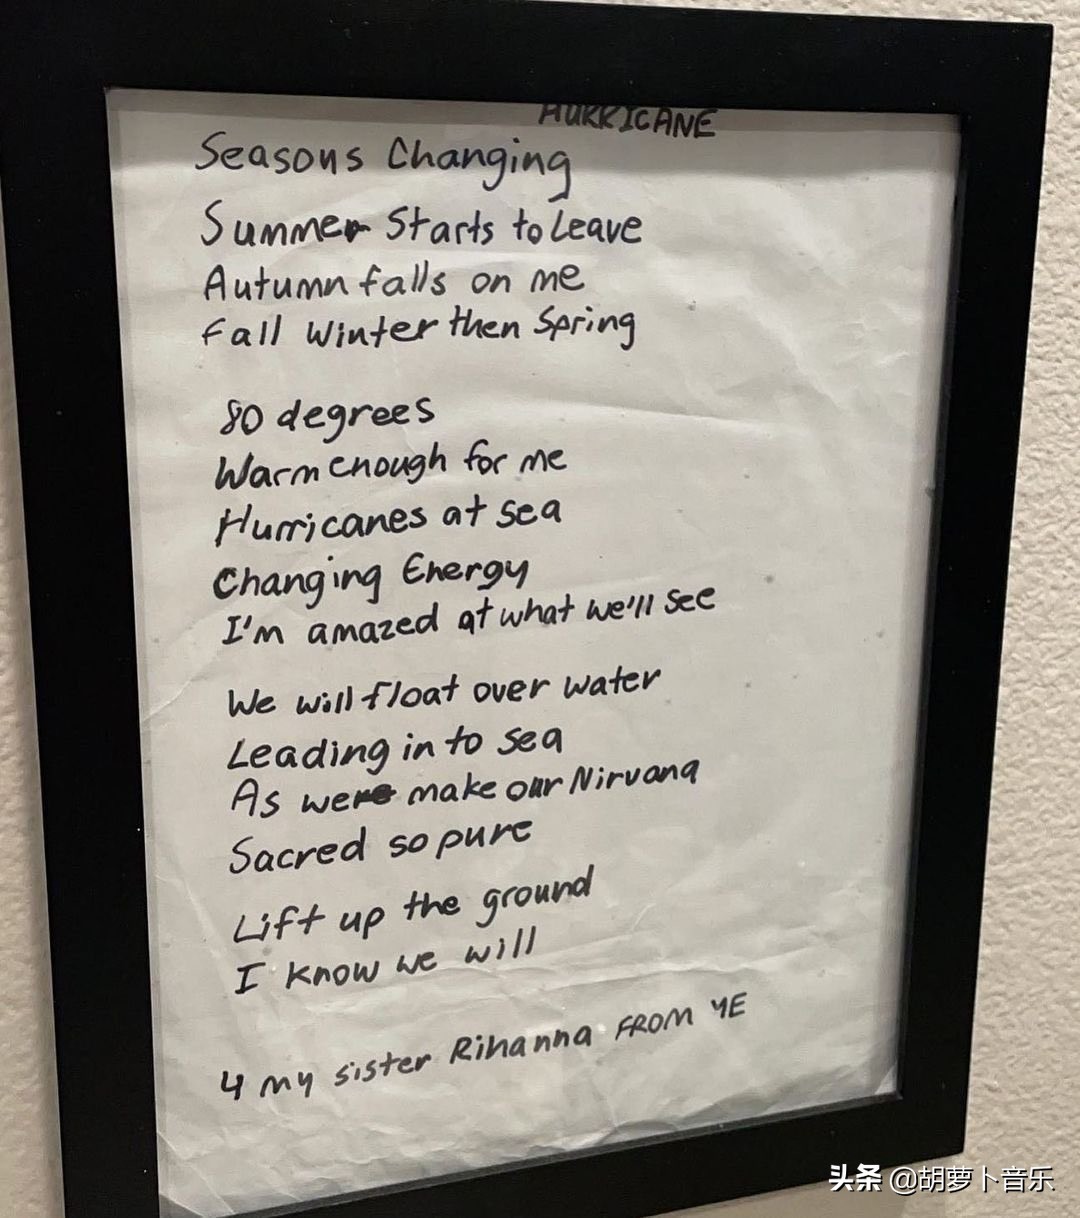 HURRICANE
Seasons Changing
Summer Starts to Leave
Autumn falls on me
Fall Winter then Spring
80 degrees
Warm enough for me
Hurricanes at sea
Changing Energy
I'm amazed at what we'll see
We will float over water
Leading in to sea
As were make our Nirvana
Sacred so pure
Lift up the ground
I know we will
4 my sister Rihanna FROM YE
头条 @胡萝卜音乐